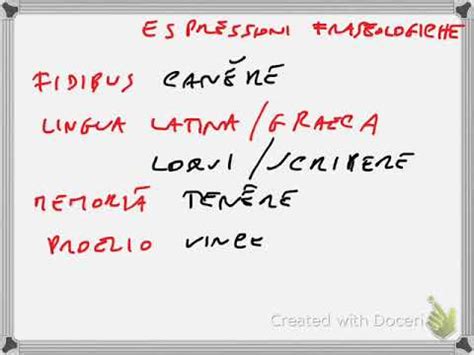 ESPRESSIONI FRASEOLOGICHE
FIDIBUS CANĔRE
LINGUA LATINA/GRAECA
LOQUI/SCRIBERE
MEMORIĀ TENĒRE
PROELIO VINCE
Created with Doceri